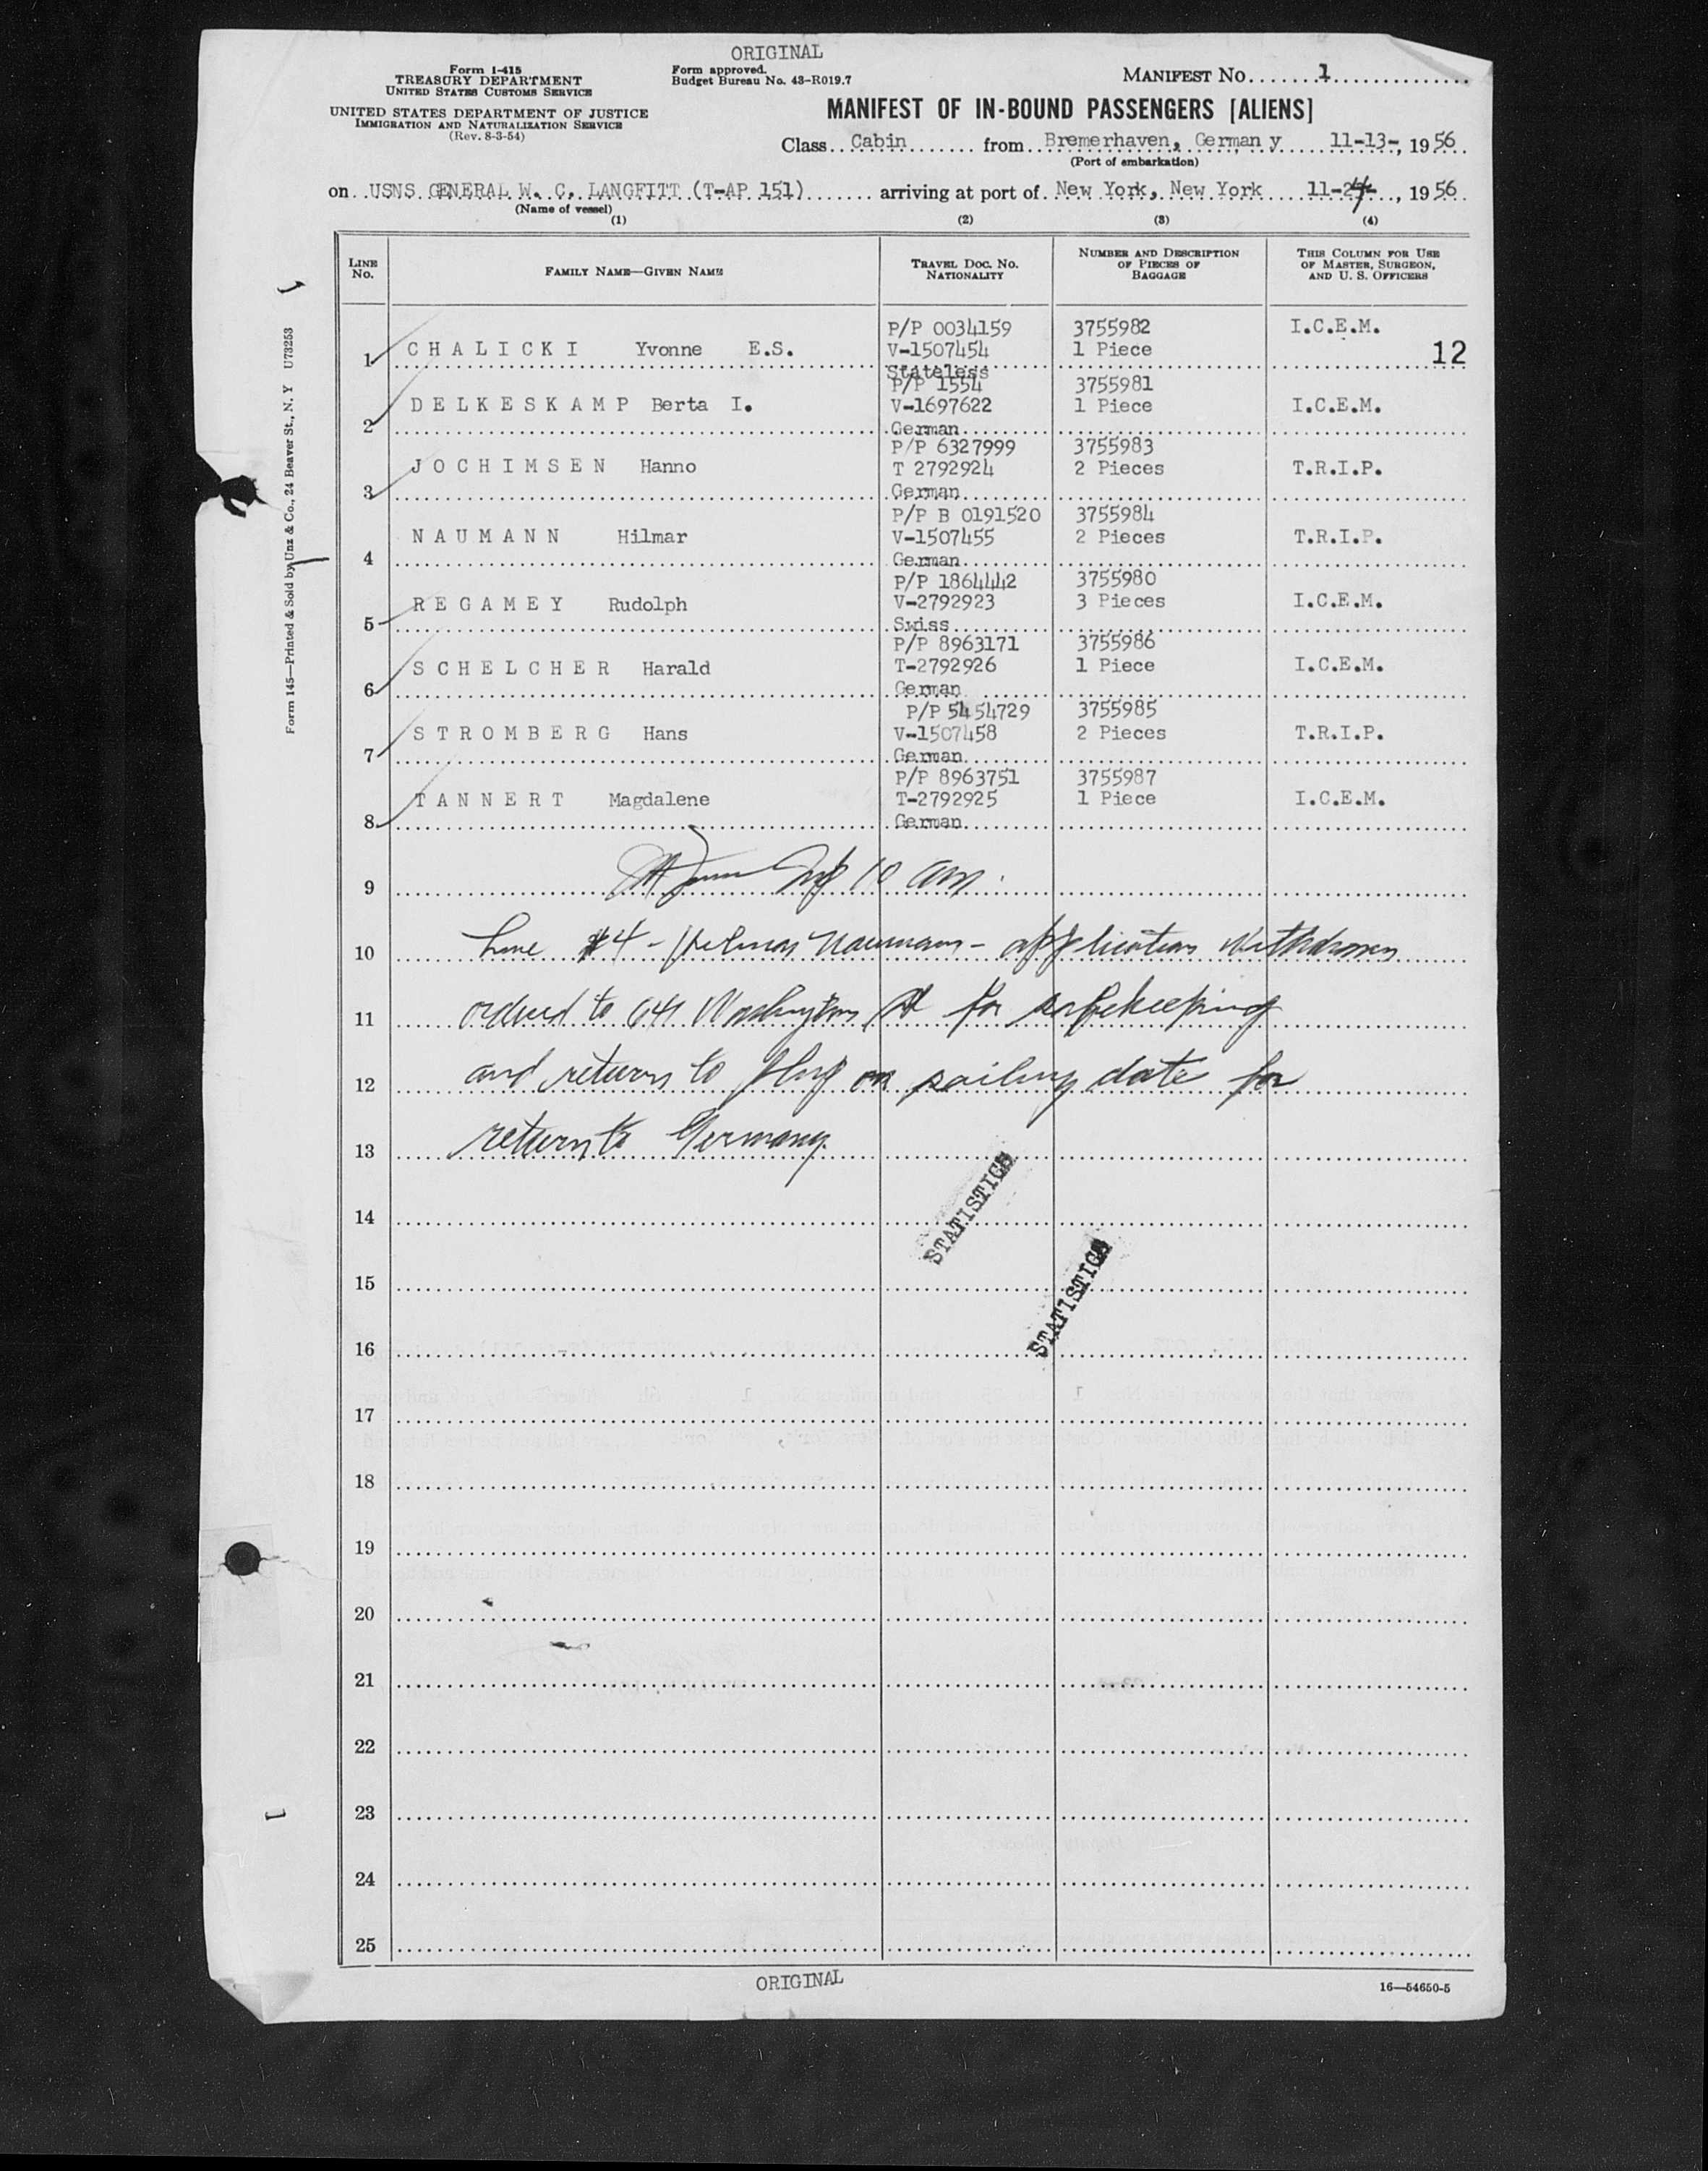 ORIGINAL
Form I-415
TREASURY DEPARTMENT
UNITED STATES CUSTOMS SERVICE
UNITED STATES DEPARTMENT OF JUSTICE
IMMIGRATION AND NATURALIZATION SERVICE
(Rev. 8-3-54)
Form approved.
Budget Bureau No. 43-R019.7
MANIFEST NO. 1
MANIFEST OF IN-BOUND PASSENGERS [ALIENS]
Class Cabin from Bremerhaven, German y 11-13-, 1956
(Port of embarkation)
on USNS GENERAL W. C. LANGFITT (T-AP 151) arriving at port of New York, New York 11-24-, 1956
(Name of vessel)
(1) (2) (3) (4)
LINE NO. FAMILY NAME—GIVEN NAME TRAVEL DOC. NO. NATIONALITY NUMBER AND DESCRIPTION OF PIECES OF BAGGAGE THIS COLUMN FOR USE OF MASTER, SURGEON, AND U. S. OFFICERS
P/P 0034159 3755982 I.C.E.M.
1 CHALICKI Yvonne E.S. V-1507454 1 Piece 12
Stateless
P/P 1554 3755981
2 DELKESKAMP Berta I. V-1697622 1 Piece I.C.E.M.
German
P/P 6327999 3755983
3 JOCHIMSEN Hanno T 2792924 2 Pieces T.R.I.P.
German
P/P B 0191520 3755984
4 NAUMANN Hilmar V-1507455 2 Pieces T.R.I.P.
German
P/P 1864442 3755980
5 REGAMEY Rudolph V-2792923 3 Pieces I.C.E.M.
Swiss
P/P 8963171 3755986
6 SCHELCHER Harald T-2792926 1 Piece I.C.E.M.
German
P/P 5454729 3755985
7 STROMBERG Hans V-1507458 2 Pieces T.R.I.P.
German
P/P 8963751 3755987
8 TANNERT Magdalene T-2792925 1 Piece I.C.E.M.
German
9 10 am.
10 Line #4 - Hilmar Naumann - application withdrawn
11 ordered to 641 Washington St for safekeeping
12 and return to ship on sailing date for
13 return to Germany
14
STATISTICS
15
STATISTICS
16
17
18
19
20
21
22
23
24
25
ORIGINAL
16—54650-5
Form 145—Printed & Sold by Unz & Co., 24 Beaver St., N. Y U73253
1
1